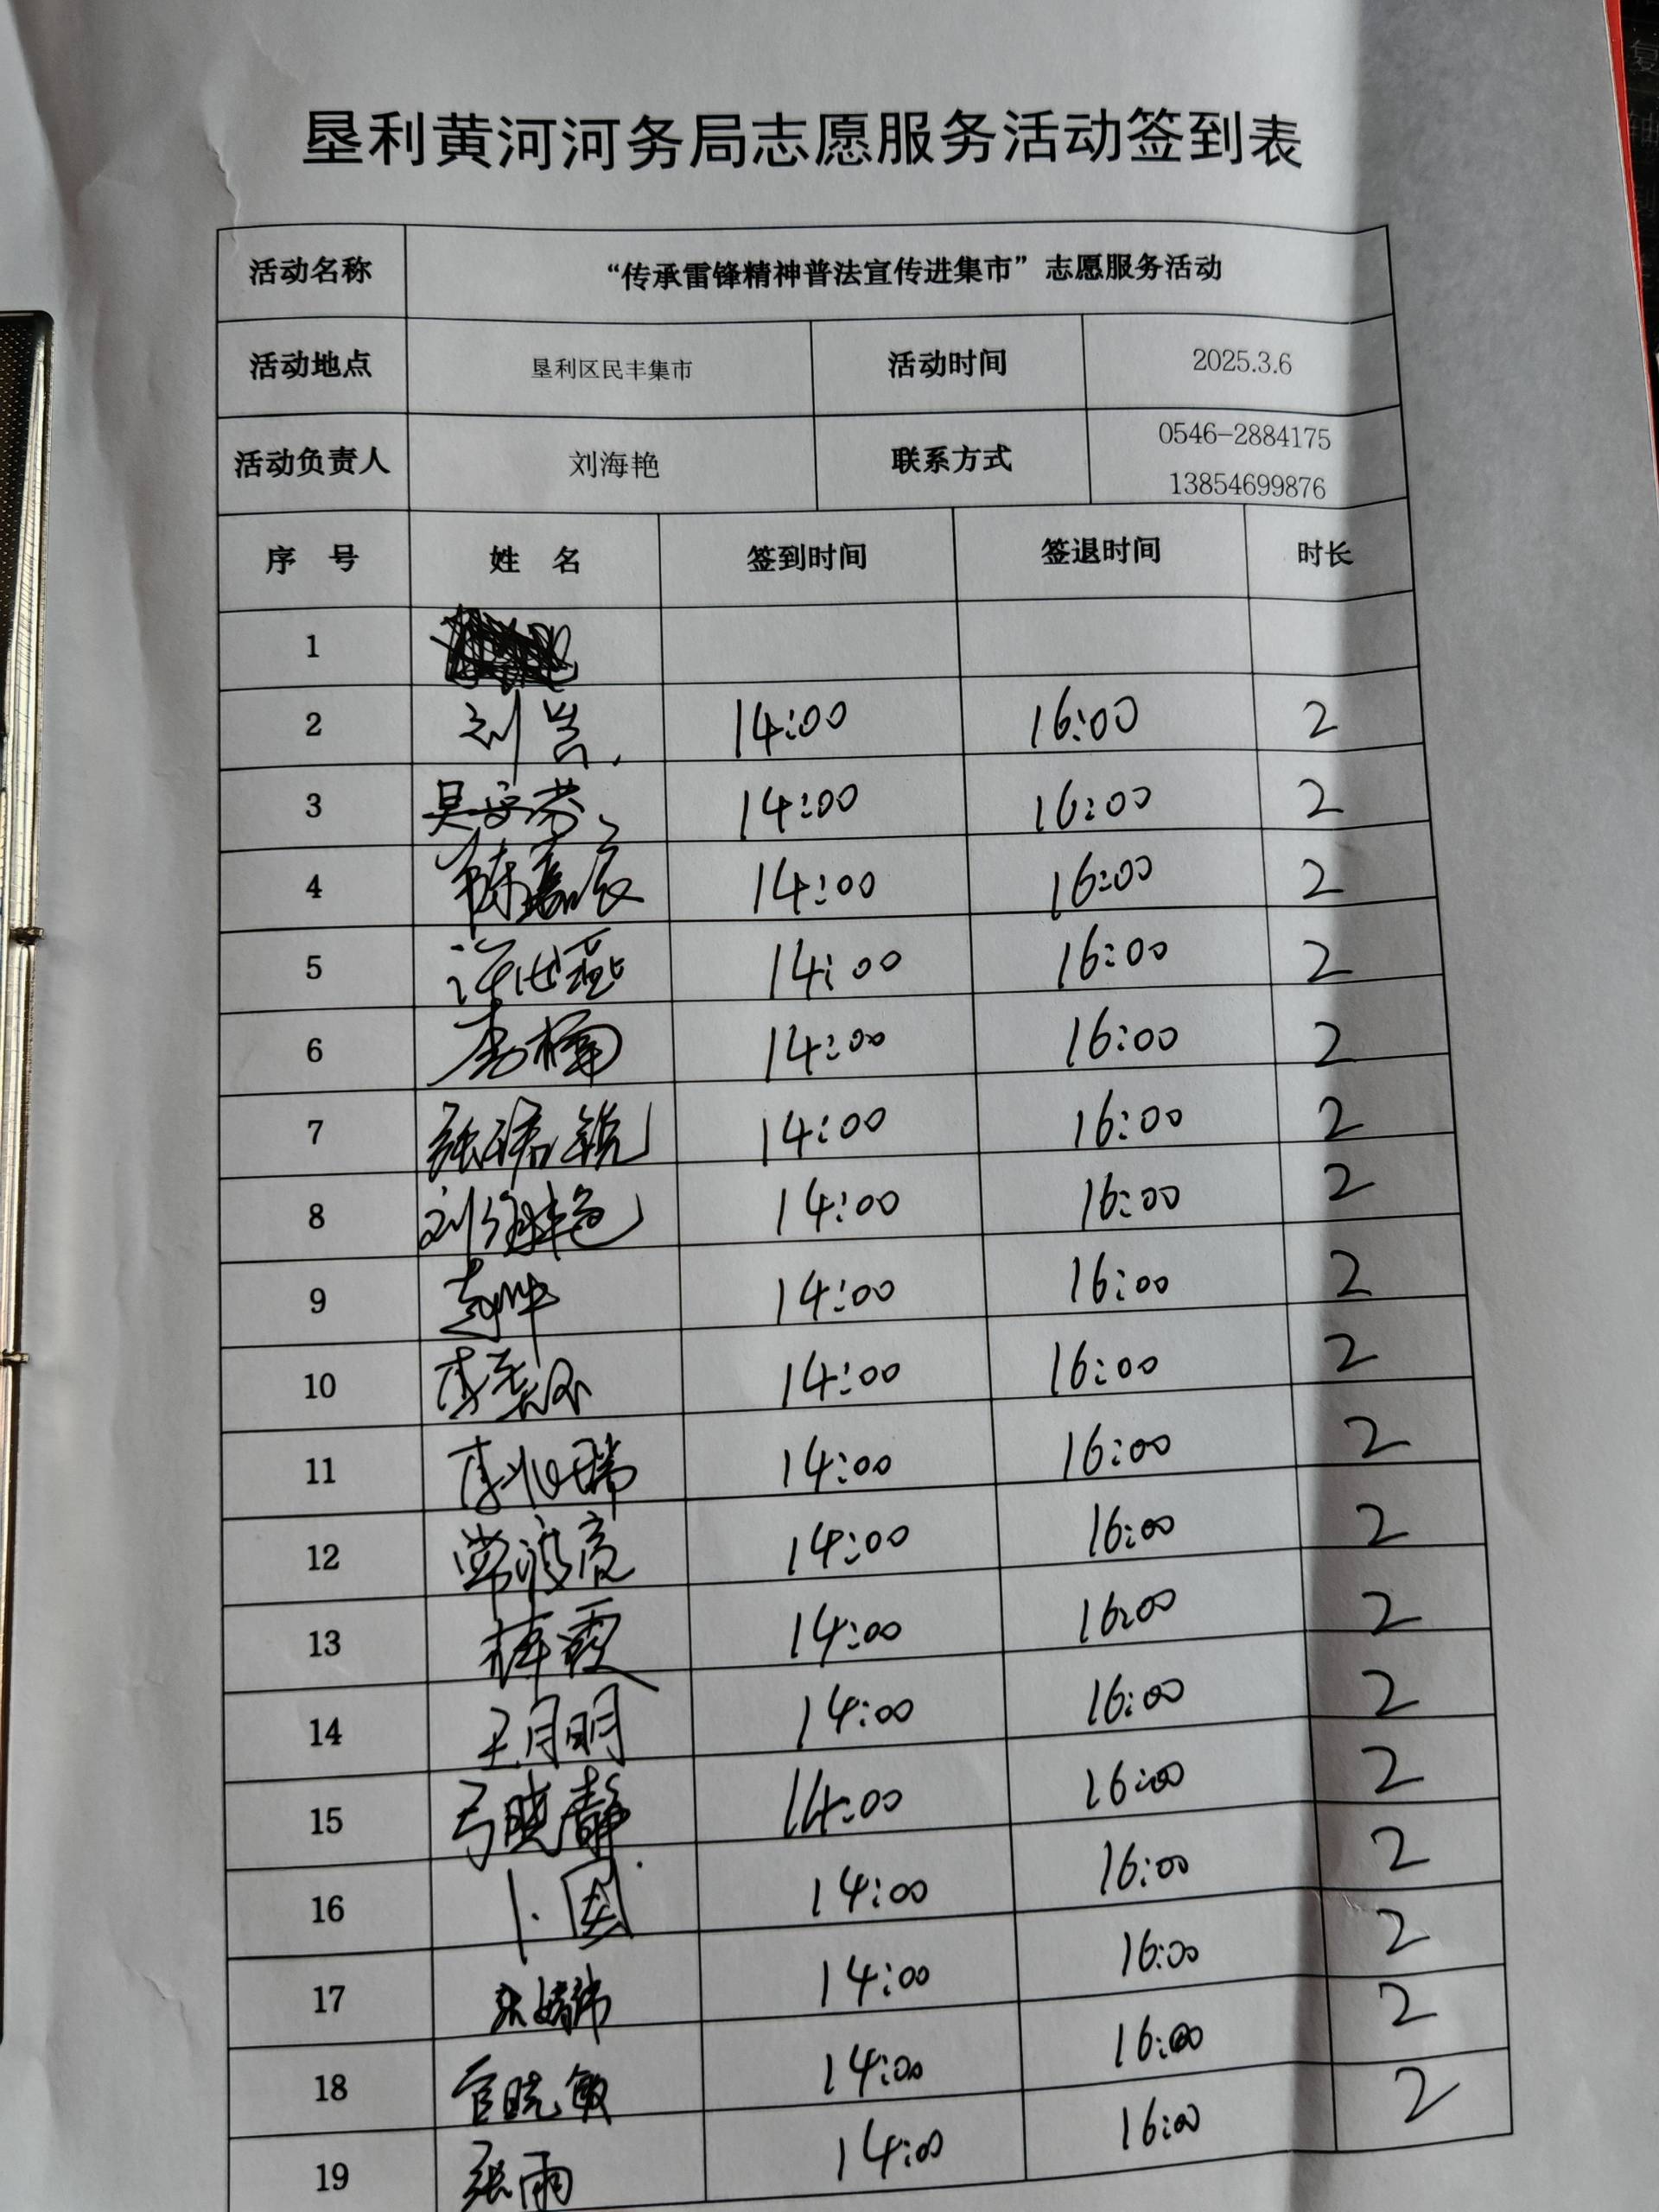 垦利黄河河务局志愿服务活动签到表
活动名称 “传承雷锋精神普法宣传进集市”志愿服务活动
活动地点 垦利区民丰集市 活动时间 2025.3.6
活动负责人 刘海艳 联系方式 0546-2884175
13854699876
序 号 姓 名 签到时间 签退时间 时长
1
2 刘岩 14:00 16:00 2
3 14:00 16:00 2
4 14:00 16:00 2
5 14:00 16:00 2
6 李楠 14:00 16:00 2
7 14:00 16:00 2
8 刘海艳 14:00 16:00 2
9 14:00 16:00 2
10 14:00 16:00 2
11 14:00 16:00 2
12 14:00 16:00 2
13 薛霞 14:00 16:00 2
14 王月明 14:00 16:00 2
15 弓晓静 14:00 16:00 2
16 14:00 16:00 2
17 14:00 16:00 2
18 官晓敏 14:00 16:00 2
19 张雨 14:00 16:00 2